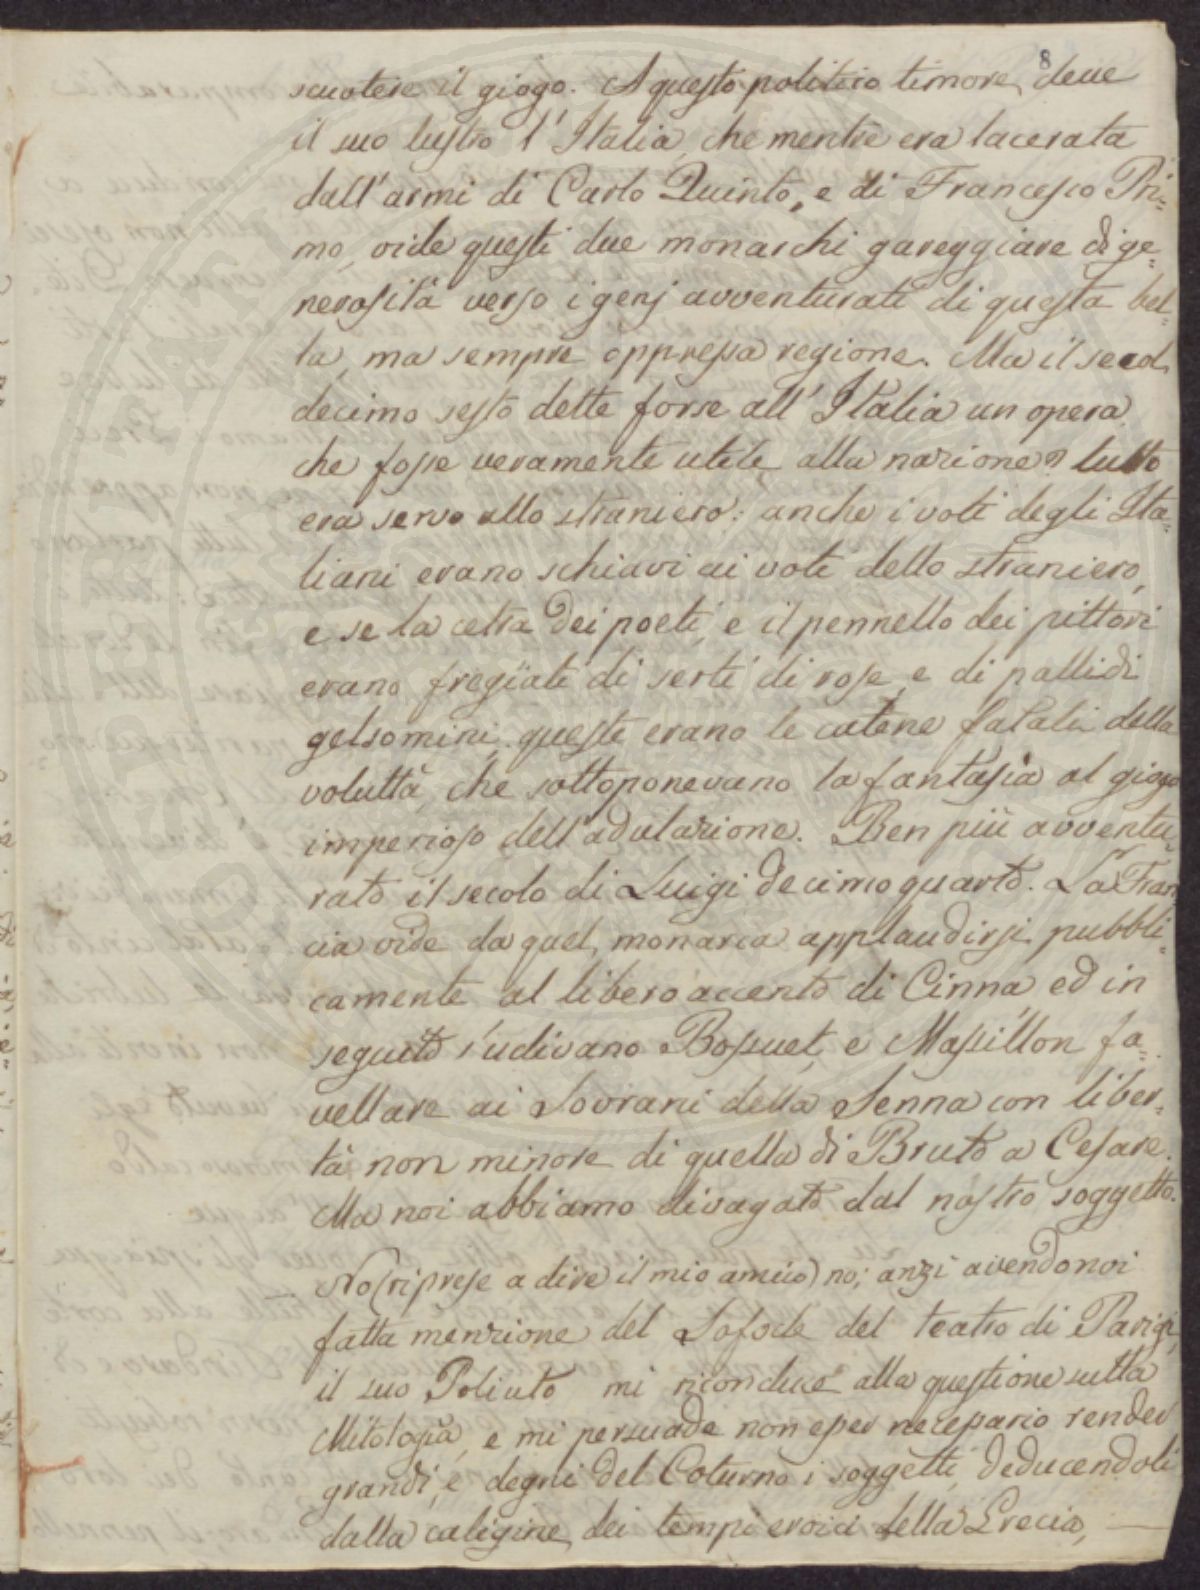 8
scuotere il giogo. A questo politico timore deve
il suo lustro l'Italia, che mentre era lacerata
dall'armi di Carlo Quinto, e di Francesco Pri=
mo, vide questi due monarchi gareggiare di ge=
nerosità verso i genj avventurati di questa bel=
la, ma sempre oppressa regione. Ma il secol
decimo sesto dette forse all'Italia un opera
che fosse veramente utile alla nazione? tutto
era servo allo straniero: anche i voti degli Ita=
liani erano schiavi ai voti dello straniero,
e se la cetra dei poeti, e il pennello dei pittori
erano fregiati di serti di rose, e di pallidi
gelsomini, queste erano le catene fatali della
voluttà, che sottoponevano la fantasia al giogo
imperioso dell'adulazione. Ben più avventu=
rato il secolo di Luigi decimoquarto. La Fran
cia vide da quel monarca applaudirsi pubbli=
camente al libero accento di Cinna ed in
seguito s'udivano Bossuet, e Massillon fa=
vellare ai Sovrani della Senna con liber=
tà non minore di quella di Bruto a Cesare.
Ma noi abbiamo divagato dal nostro soggetto.
No (riprese a dire il mio amico) no; anzi avendo noi
fatta menzione del Sofocle del teatro di Parigi,
il suo Poliuto mi riconduce alla questione sulla
Mitologia, e mi persuade non esser necessario render
grandi, e degni del Coturno i soggetti, deducendoli
dalla caligine dei tempi eroici della Grecia,